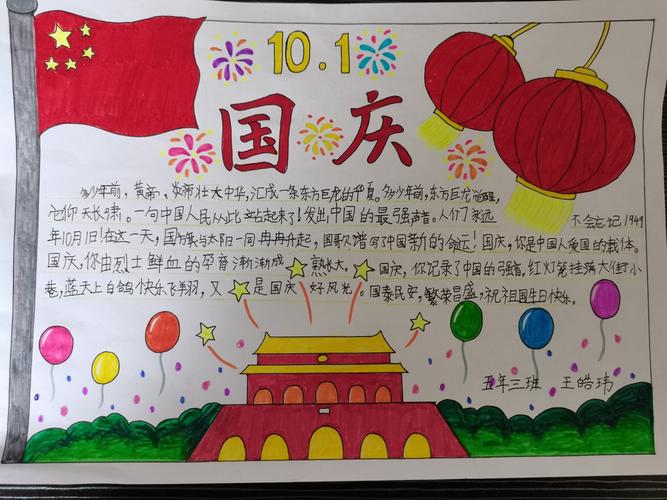 10.1
国庆
多少年前，黄帝、炎帝壮大中华，汇成一条东方巨龙的华夏。多少年前，东方巨龙觉醒，
它仰天长啸。一句中国人民从此站起来了！发出中国的最强声音。人们永远 不会忘记1949
年10月1日！在这一天，国旗与太阳一同冉冉升起，国歌谱写了中国新的命运！国庆，你是中国人爱国的载体。
国庆，你由烈士鲜血的孕育渐渐成 熟长大。 国庆，你记录了中国的强者。红灯笼挂满大街小
巷，蓝天上白鸽快乐飞翔，又 是国庆 好风光。国泰民安，繁荣昌盛，祝祖国生日快乐。
五年三班 王皓玮